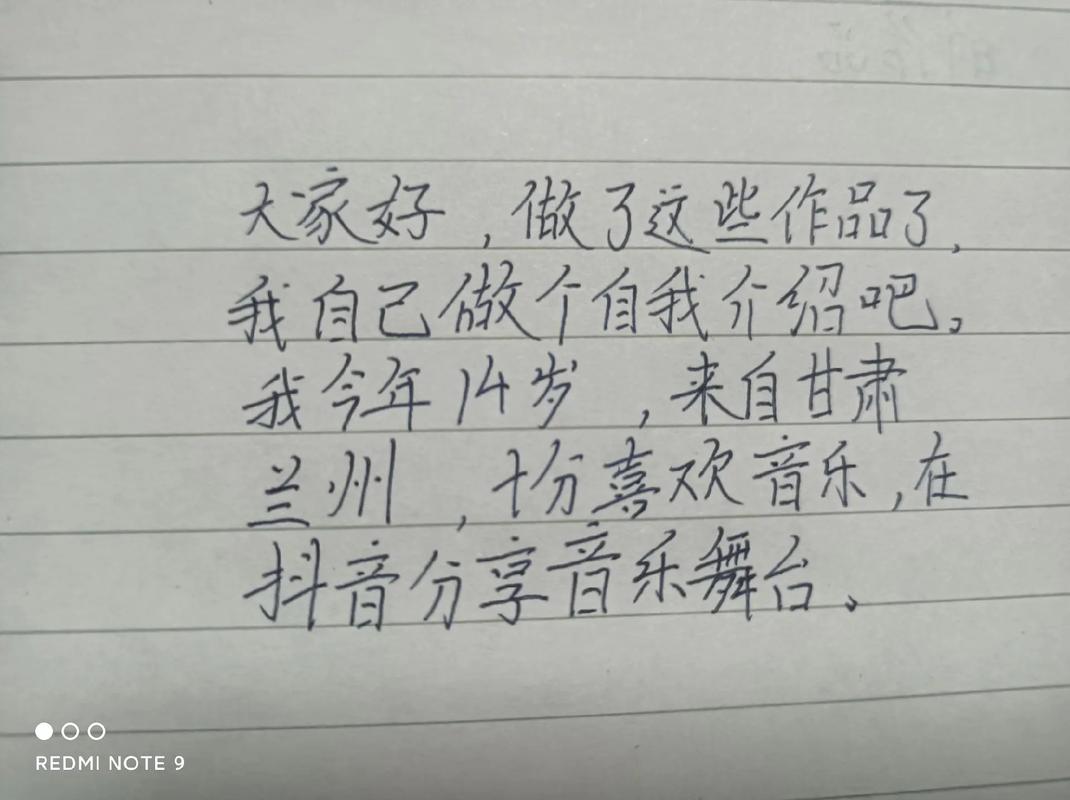 大家好，做了这些作品了，
我自己做个自我介绍吧。
我今年14岁，来自甘肃
兰州，十分喜欢音乐，在
抖音分享音乐舞台。
REDMI NOTE 9